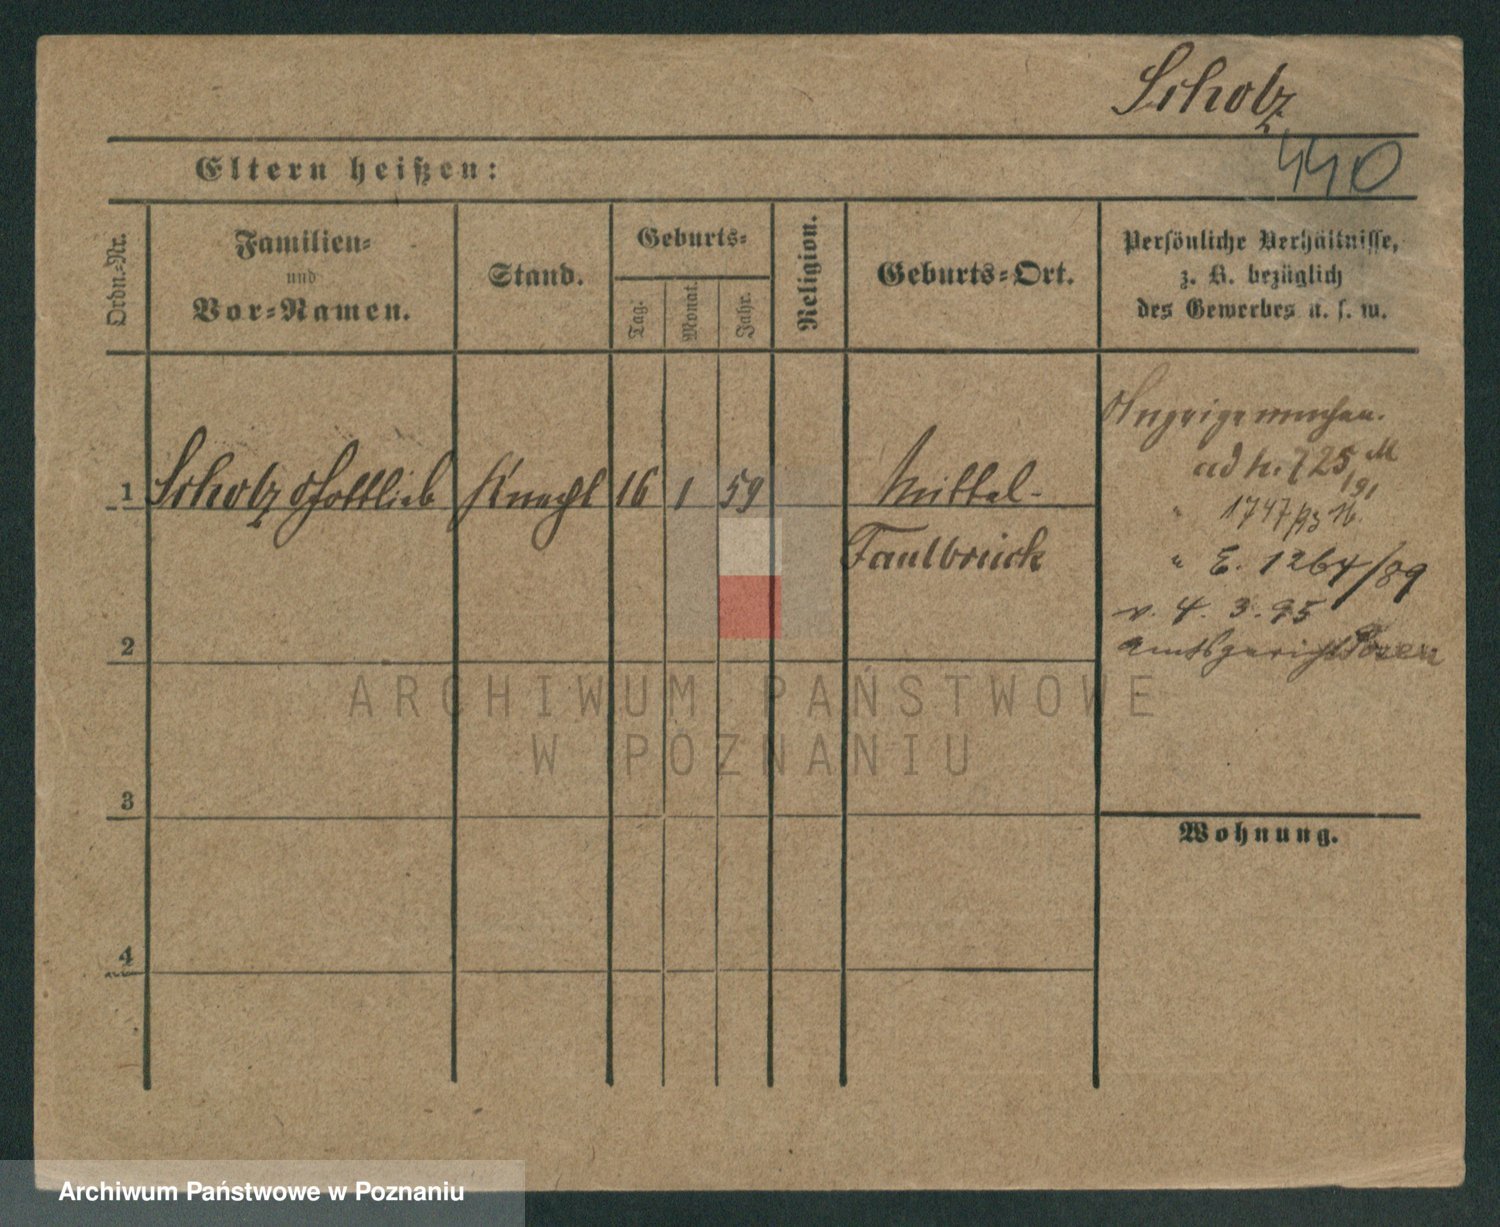 Scholz
440
Eltern heißen:
Ordn.-Nr.
Familien-
und
Vor-Namen.
Stand.
Geburts-
Tag.
Monat.
Jahr.
Religion.
Geburts-Ort.
Persönliche Verhältnisse,
z. B. bezüglich
des Gewerbes u. s. w.
1 Scholz Gottlieb Knecht 16 1 59 Mittel-
Faulbrück
ad h. 725/91 M
" 1747/93 M.
" E. 1264/89
v. 4. 3. 95
Amtsgericht Posen
2
3
4
Wohnung.
ARCHIWUM PAŃSTWOWE
W POZNANIU
Archiwum Państwowe w Poznaniu